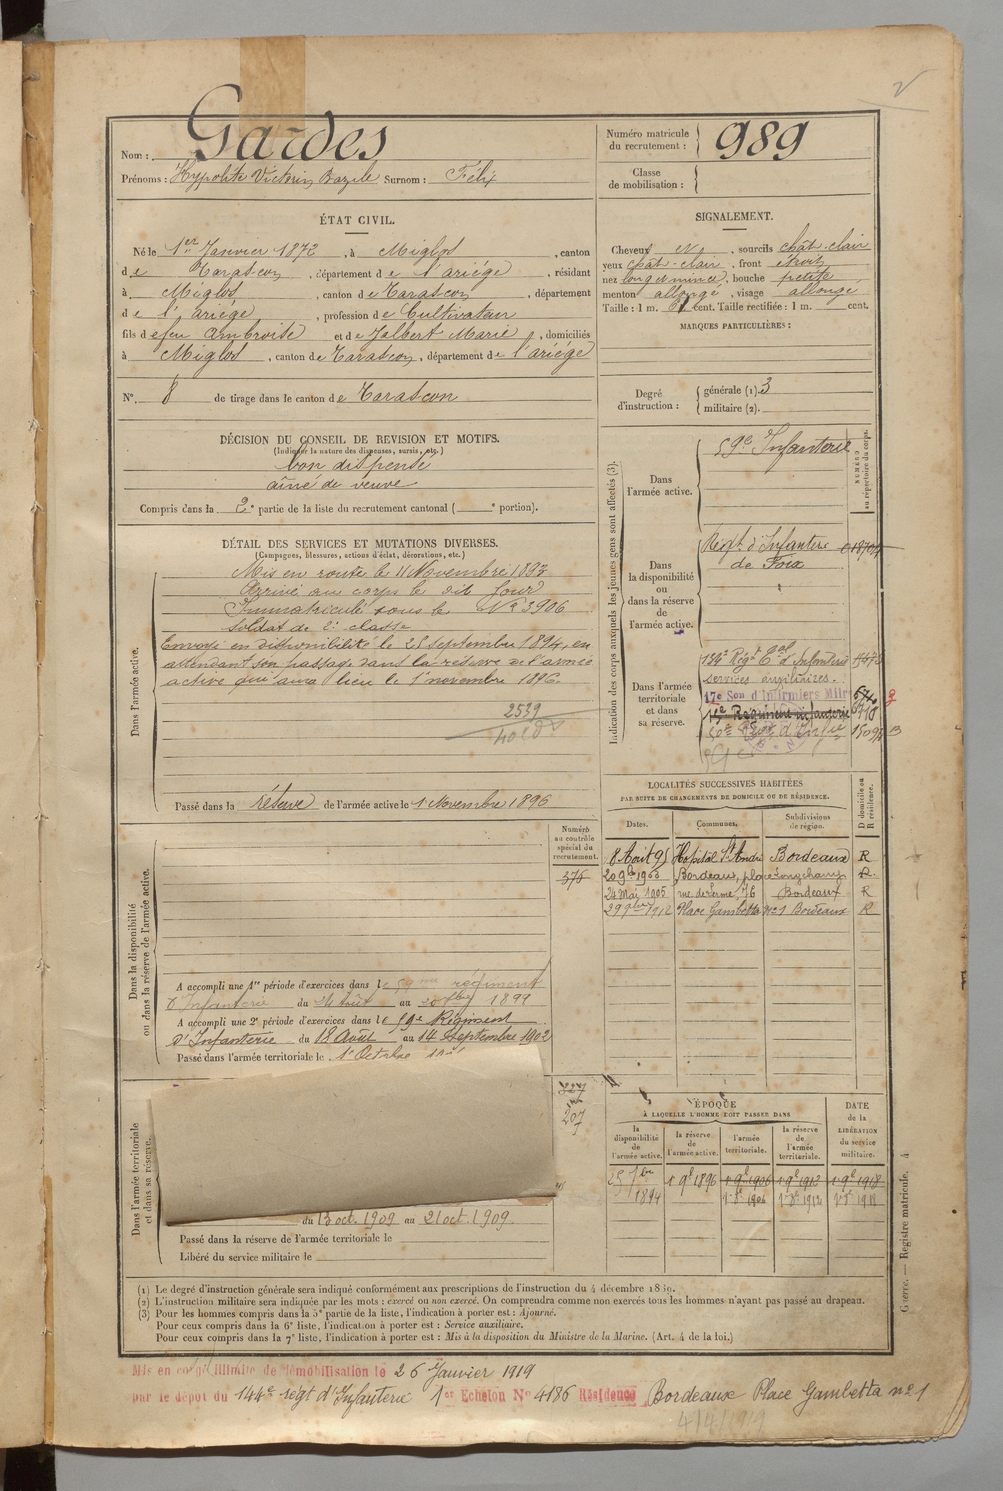 Nom : Gardes
Prénoms : Hypolite Victorin Bazile Surnom : Félix
Numéro matricule du recrutement : 989
Classe de mobilisation :
ÉTAT CIVIL.
Né le 1er Janvier 1872, à Miglos, canton
de Tarascon, département de l'ariége, résidant
à Miglos, canton de Tarascon, département
de l'ariége, profession de Cultivateur
fils de feu Ambroise et de Jalbert Marie, domiciliés
à Miglos, canton de Tarascon, département de l'ariége
N° 8 de tirage dans le canton de Tarascon
SIGNALEMENT.
Cheveux sourcils chât-clair
yeux chât-clair, front étroit
nez long et mince, bouche petite
menton allongé, visage allongé
Taille : 1 m. cent. Taille rectifiée : 1 m. cent.
MARQUES PARTICULIÈRES :
Degré d'instruction : générale (1). 3
militaire (2).
DÉCISION DU CONSEIL DE REVISION ET MOTIFS.
(Indiquer la nature des dispenses, sursis, etc.)
bon dispensé
aîné de veuve
Compris dans la 2e partie de la liste du recrutement cantonal ( e portion).
DÉTAIL DES SERVICES ET MUTATIONS DIVERSES.
(Campagnes, blessures, actions d'éclat, décorations, etc.)
Dans l'armée active.
Mis en route le 11 Novembre 1893
Arrivé au corps le dit jour
Immatriculé sous le N° 3906
soldat de 2e classe
Envoyé en disponibilité le 25 septembre 1894, en
attendant son passage dans la réserve de l'armée
active qui aura lieu le 1er novembre 1896.
2539
Passé dans la réserve de l'armée active le 1 Novembre 1896
Indication des corps auxquels les jeunes gens sont affectés (3).
NUMÉRO au répertoire du corps.
Dans l'armée active.
59e Infanterie
Dans la disponibilité ou dans la réserve de l'armée active.
Régt. d'Infanterie
de Foix
Dans l'armée territoriale et dans sa réserve.
134e Régt Eal d'Infanterie
services auxiliaires.
17e Son d'Infirmiers Milres
LOCALITÉS SUCCESSIVES HABITÉES
PAR SUITE DE CHANGEMENTS DE DOMICILE OU DE RÉSIDENCE.
Dates. Communes. Subdivisions de région. D domicile ou R résidence.
8 Août 95 Hôpital St André Bordeaux R
20 9bre 1903 Bordeaux, place Longchamp R.
24 Mai 1905 rue de Ferme, 76 Bordeaux R
29 9bre 1912 Place Gambetta No 1 Bordeaux R
Dans la disponibilité ou dans la réserve de l'armée active.
Numéro au contrôle spécial du recrutement.
375
A accompli une 1re période d'exercices dans le 59me régiment
d'Infanterie du 24 Août au 20 7bre 1899
A accompli une 2e période d'exercices dans le 59e Régiment
d'Infanterie du 18 Août au 14 Septembre 1902
Passé dans l'armée territoriale le 1er Octobre
Dans l'armée territoriale et dans sa réserve.
207
du 13 oct. 1909 au 21 oct. 1909.
Passé dans la réserve de l'armée territoriale le
Libéré du service militaire le
ÉPOQUE
À LAQUELLE L'HOMME DOIT PASSER DANS
DATE de la LIBÉRATION du service militaire.
la disponibilité de l'armée active. la réserve de l'armée active. l'armée territoriale. la réserve de l'armée territoriale.
25 7bre 1894 1 9e 1896 1 9e 1906 1 9e 1912 1 9e 1918
(1) Le degré d'instruction générale sera indiqué conformément aux prescriptions de l'instruction du 4 décembre 1889.
(2) L'instruction militaire sera indiquée par les mots : exercé ou non exercé. On comprendra comme non exercés tous les hommes n'ayant pas passé au drapeau.
(3) Pour les hommes compris dans la 5e partie de la liste, l'indication à porter est : Ajourné.
Pour ceux compris dans la 6e liste, l'indication à porter est : Service auxiliaire.
Pour ceux compris dans la 7e liste, l'indication à porter est : Mis à la disposition du Ministre de la Marine. (Art. 4 de la loi.)
Guerre. — Registre matricule. 4
Mis en congé illimité de démobilisation le 26 Janvier 1919
par le dépot du 144e regt d'Infanterie 1er Echelon N° 4186 Résidence Bordeaux Place Gambetta no 1
4/4/1919